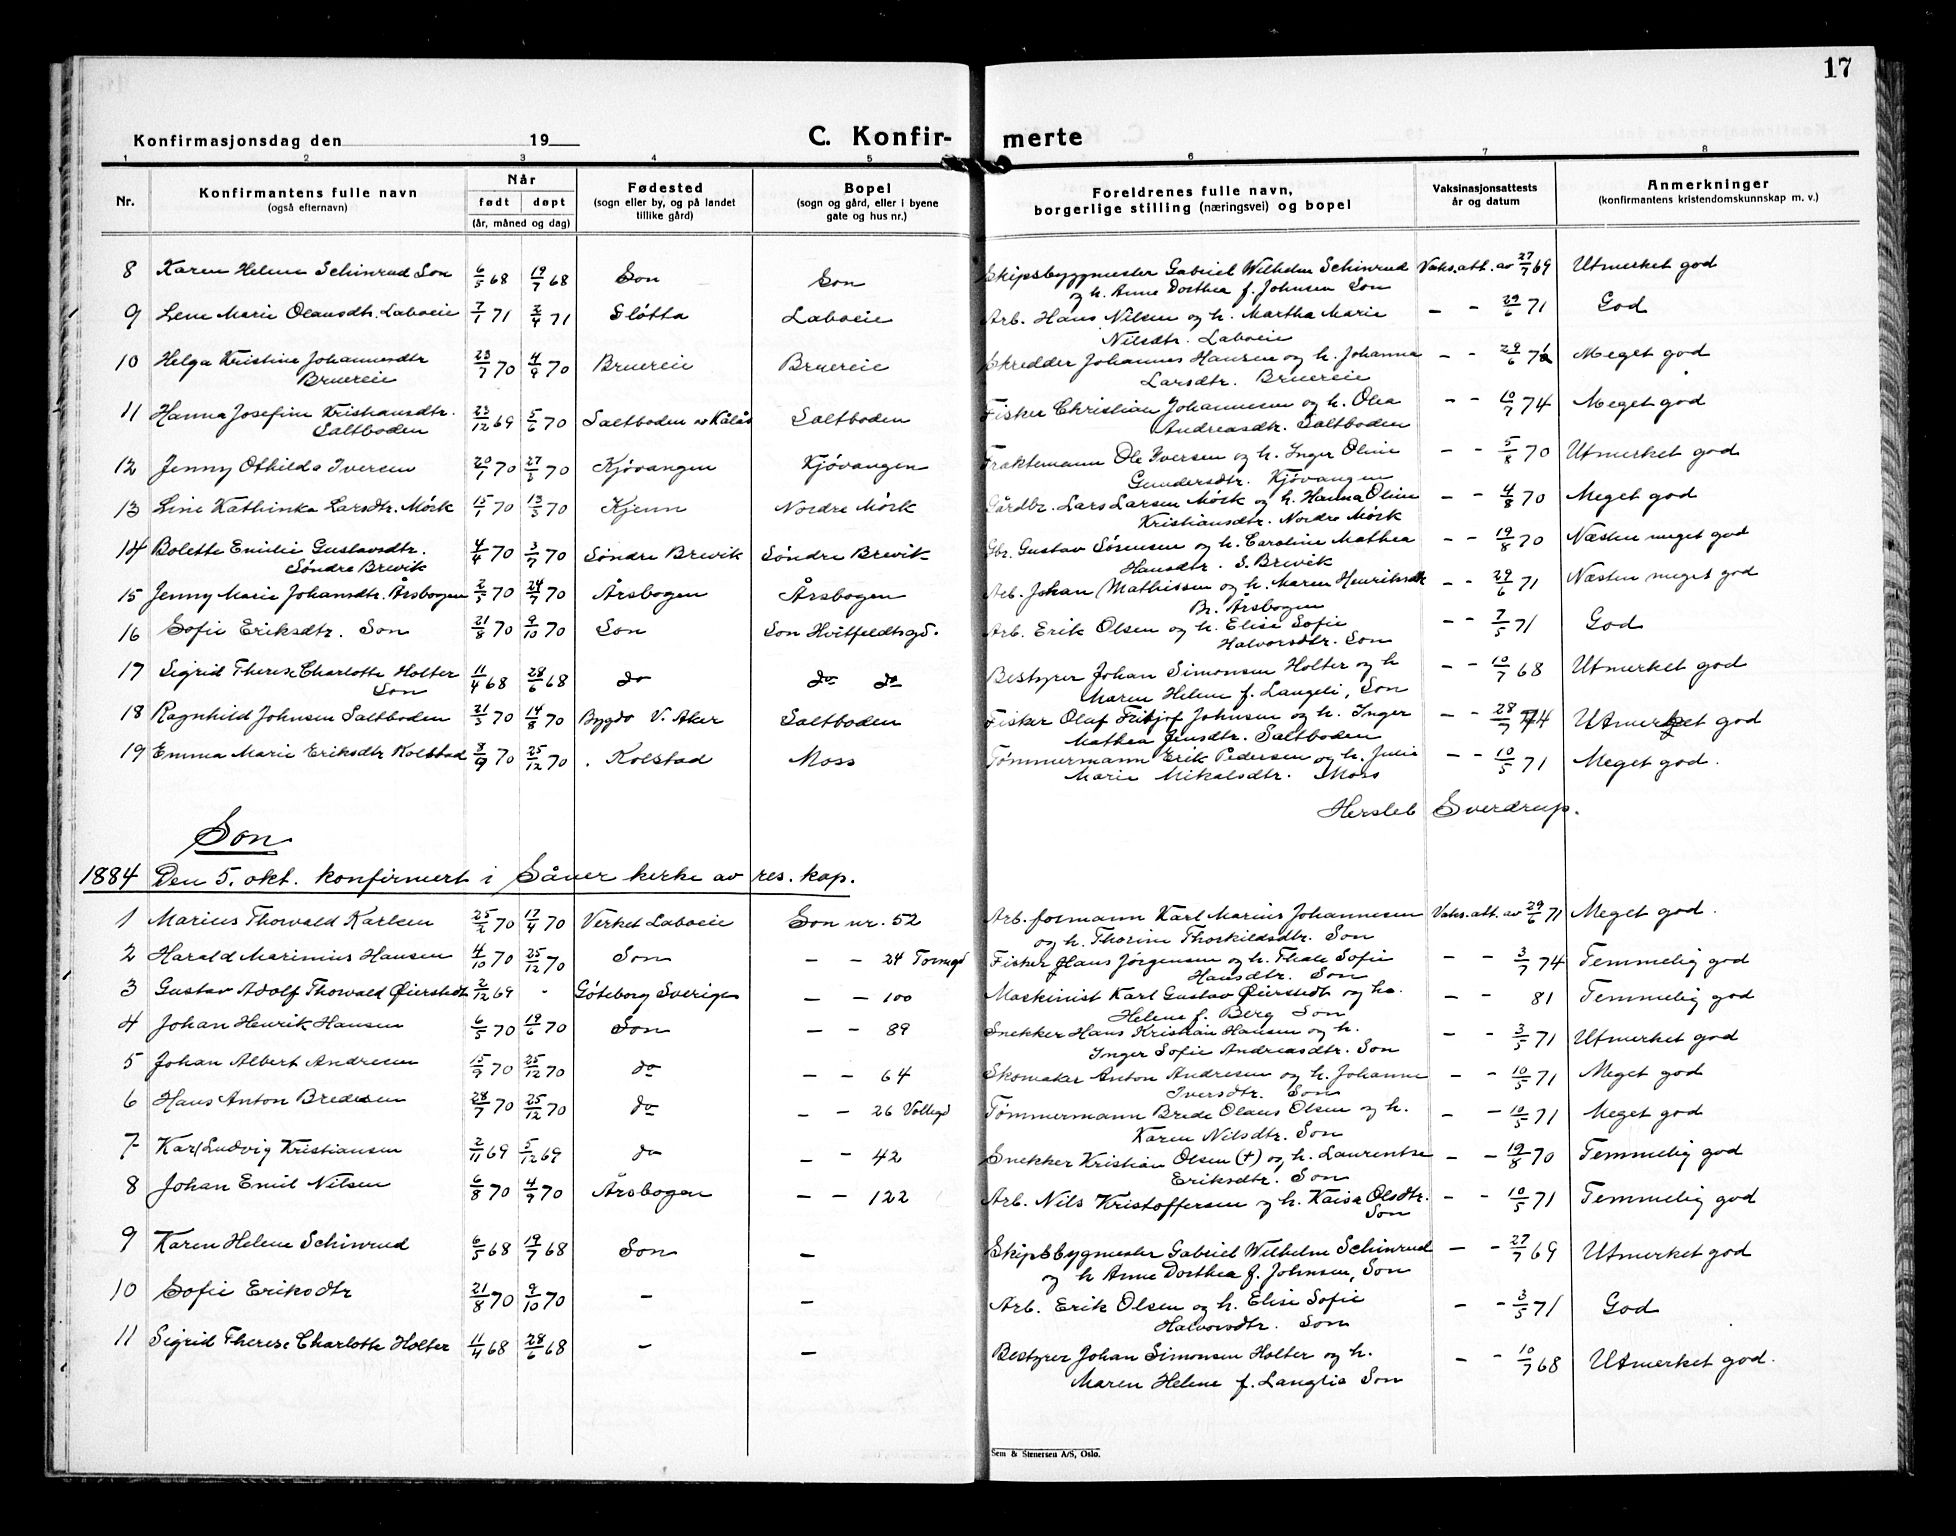 17
Konfirmasjonsdag den 19
C. Konfir- merte
1 2 3 4 5 6 7 8
Nr. Konfirmantens fulle navn (også efternavn) Når født døpt (år, måned og dag) Fødested (sogn eller by, og på landet tillike gård) Bopel (sogn og gård, eller i byene gate og hus nr.) Foreldrenes fulle navn, borgerlige stilling (næringsvei) og bopel Vaksinasjonsattests år og datum Anmerkninger (konfirmantens kristendomskunnskap m. v.)
8 Karen Helene Schinrud Son 6/5 68 19/7 68 Son Son Skipsbyggmester Gabriel Wilhelm Schinrud Vaks.att. av 27/7 69 Utmerket god
og h. Anne Dorthea f. Johnsen Son
9 Lene Marie Olausdtr. Laboeie 7/1 71 2/4 71 Sløtta Laboeie Arb. Hans Nilsen og h. Martha Marie - - 29/6 71 God
Nilsdtr. Laboeie
10 Helga Kristine Johannesdtr 23/7 70 4/9 70 Bruereie Bruereie Skredder Johannes Hansen og h. Johanna - - 29/6 71 Meget god
Bruereie Larsdtr. Bruereie
11 Hanna Josefine Kristiansdtr. 23/12 69 5/6 70 Saltboden Saltboden Fisker Christian Johannesen og h. Olea - - 10/7 74 Meget god
Saltboden Andreasdtr. Saltboden
12 Jenny Othilda Iversen 20/1 70 27/3 70 Kjøvangen Kjøvangen Fraktemann Ole Iversen og h. Inger Oline - - 5/8 70 Utmerket god
Gundersdtr. Kjøvangen
13 Line Kathinka Larsdtr. Mørk 15/1 70 13/3 70 Kjenn Nordre Mørk Gårdbr. Lars Larsen Mørk og h. Hanna Oline - - 4/8 70 Meget god
Kristiansdtr. Nordre Mørk
14 Bolette Emilie Gustavsdtr. 4/4 70 3/7 70 Søndre Brevik Søndre Brevik Gbr. Gustav Sørensen og h. Caroline Mathea - - 19/8 70 Næsten meget god
Søndre Brevik Hansdtr. S. Brevik
15 Jenny Marie Johansdtr. Årsbogen 2/5 70 24/7 70 Årsbogen Årsbogen Arb. Johan Mathissen og h. Maren Henriksdtr - - 29/6 71 Næsten meget god
Br. Årsbogen
16 Sofie Eriksdtr. Son 21/8 70 9/10 70 Son Son Hvitfeldtsgd. Arb. Erik Olsen og h. Elise Sofie - - 7/5 71 God
Halvorsdtr. Son
17 Sigrid Therese Charlotte Holter 11/4 68 28/6 68 do do do Bestyrer Johan Simonsen Holter og h - - 10/7 68 Utmerket god
Son Maren Helene f. Langeli, Son
18 Ragnhild Johnsen Saltboden 21/5 70 14/8 70 Bygdø V. Aker Saltboden Fisker Olaf Fritjof Johnsen og h. Inger - - 28/7 74 Utmerket god
Mathea Jensdtr. Saltboden
19 Emma Marie Eriksdtr Kolstad 8/9 70 25/12 70 Kolstad Moss Tømmermann Erik Pedersen og h. Julie - - 10/5 71 Meget god.
Marie Mikalsdtr. Moss
Hersleb Sverdrup.
Son
1884 Den 5. okt. konfirmert i Såner kirke av res. kap.
1 Marius Thorvald Karlsen 25/2 70 17/4 70 Verket Laboeie Son nr. 52 Arb. formann Karl Marius Johannesen Vaks.att. av 29/6 71 Meget god.
og h. Thorine Thorkildsdtr. Son
2 Harald Marinius Hansen 4/10 70 25/12 70 Son - - 24 Torvegd Fisker Hans Jørgensen og h. Thale Sofie - - 3/7 74 Temmelig god
Hansdtr. Son
3 Gustav Adolf Thorvald Øierstedt 2/12 69 - Göteborg Sverige - - 100 Maskinist Karl Gustav Øierstedt og h. - - 81 Temmelig god
Helene f. Berg Son
4 Johan Henrik Hansen 6/5 70 19/6 70 Son - - 89 Snekker Hans Kristian Hansen og h. - - 3/5 71 Utmerket god
Inger Sofie Andreasdtr. Son
5 Johan Albert Andresen 15/9 70 25/12 70 do - - 64 Skomaker Anton Andresen og h. Johanne - - 10/5 71 Meget god
Iversdtr. Son
6 Hans Anton Bredesen 28/7 70 25/12 70 do - - 26 Vollegd Tømmermann Brede Olaus Olsen og h. - - 10/5 71 Meget god
Karen Nilsdtr. Son
7 Karl Ludvig Kristiansen 2/11 69 5/12 69 do - - 42 Snekker Kristian Olsen (+) og h. Laurentse - - 19/8 70 Temmelig god
Eriksdtr. Son
8 Johan Emil Nilsen 6/8 70 4/9 70 Årsbogen - - 122 Arb. Nils Kristoffersen og h. Kaisa Olsdtr. - - 10/5 71 Temmelig god
Son
9 Karen Helene Schinrud 6/5 68 19/7 68 Son - Skipsbygmester Gabriel Wilhelm Schinrud - - 27/7 69 Utmerket god
og h Anne Dorthea f. Johnsen, Son
10 Sofie Eriksdtr 21/8 70 9/10 70 - - Arb. Erik Olsen og h. Elise Sofie - - 3/5 71 God
Halvorsdtr. Son
11 Sigrid Therese Charlotte Holter 11/4 68 28/6 68 - - Bestyrer Johan Simonsen Holter og h. - - 10/7 68 Utmerket god.
Maren Helene f. Langlia Son
Sem & Stenersen A/S, Oslo.